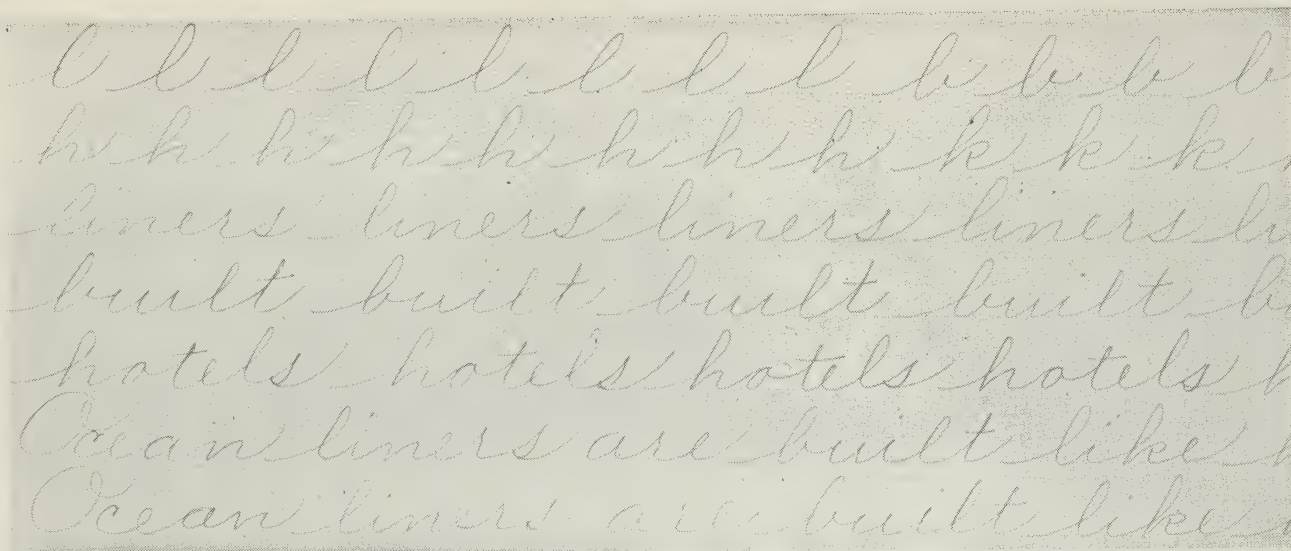 l l l l l l l l b b b b
h h h h h h h h k k k
liners liners liners liners li
built built built built b
hotels hotels hotels hotels h
Ocean liners are built like h
Ocean liners are built like